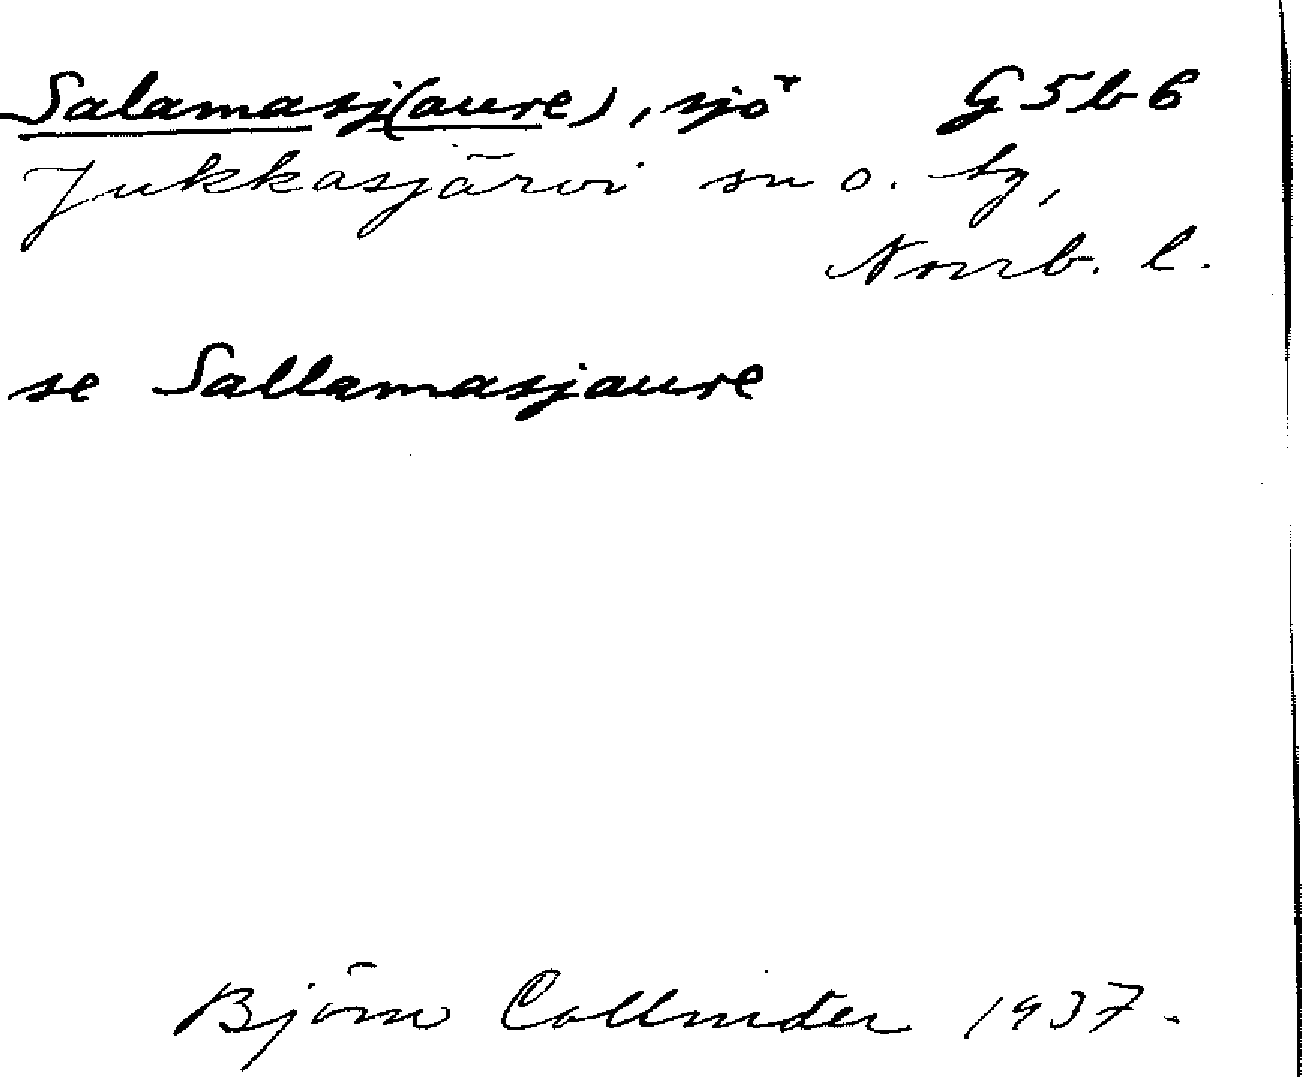 Salamasj(aure), sjö G5b6
Jukkasjärvi sn o. tg,
Norrb. l.
se Sallamasjaure
Björn Collinder 1937.